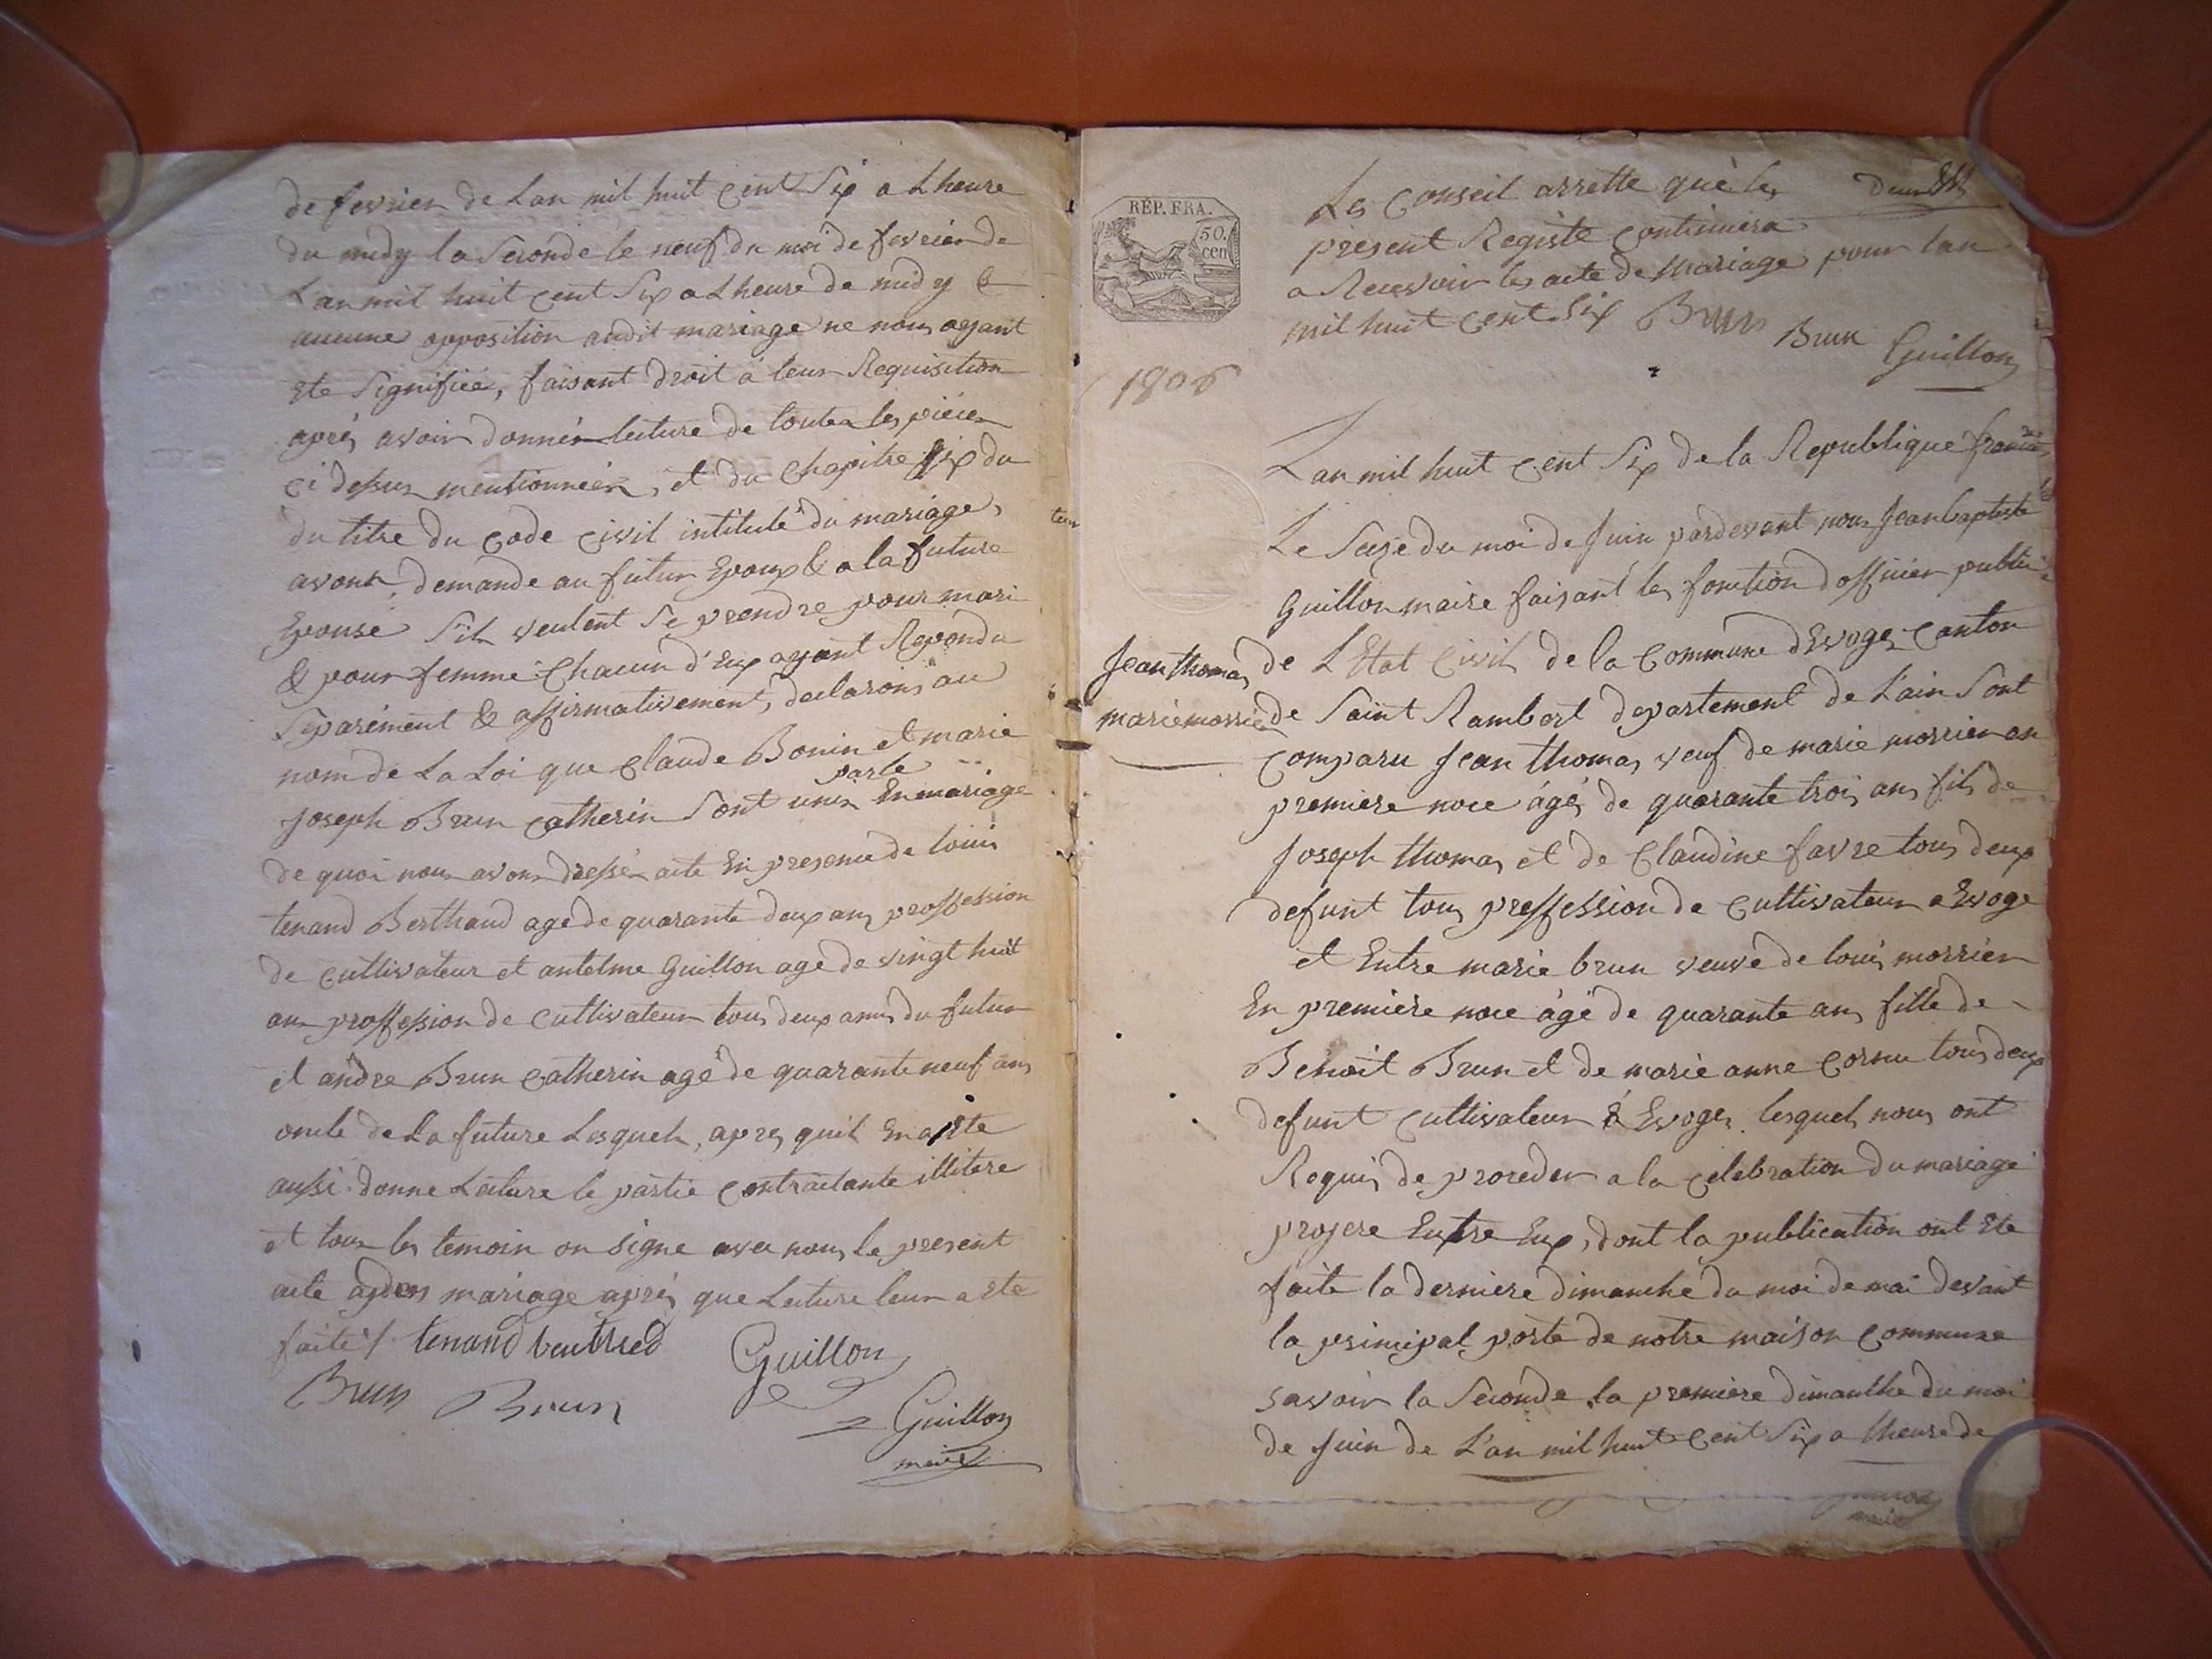 de fevrier de Lan mil huit cent Six a Lheure
du midy la Seconde le neuf du moi de fevrier de
L'an mil huit cent Six a Lheure de midy &
aucune opposition audit mariage ne nous ayant
Ete Signifiée, faisant droit a leur Requisition
aprés avoir donnér lecture de toutes les piéces
ci dessus mentionnéer, et du Chapitre Six du
du titre du Code Civil intitulé du mariage,
avons demande au futur Epoux & a la future
Epouse Sils veulent Se prendre pour mari
& pour femme Chacun d'Eux ayant Repondu
Séparément & affirmativement, declarons au
nom de La Loi que Claude Bonin et marie
Joseph Brun Catherin Sont unis En mariage
parle
de quoi nous avons dressér acte En presence de louis
tenand Berthaud age de quarante deux ans proffession
de Cultivateur et antelme Guillon age de vingt huit
ans proffession de Cultivateur tous deux amis du futur
et andre Brun Catherin agé de quarante neuf ans
oncle de La future Lesquels, apres quil En a Ete
aussi donne Lecture le partie Contractante illitere
et tous les temoin on Signe avec nous, le present
acte mariage aprés que Lecture leur a Ete
faite /. tenand Guillon
Brun Brun
Guillon
maire
RÉP. FRA.
50.
cen
1806
Les Conseil arrette què les
present Registe Continuera
a Recevoir les acte de Mariage pour lan
mil huit cent Six Brun Brun Guillon
Lan mil huit Cent Six de la Republique
Le Seize du moi de Juin pardevant nous Jean baptiste
Guillon maire faisant les fonction dofficier public
de L'Etat Civil de la Commune dEvoges Canton
Jean thomas
marie morrier
de Saint Rambert departement de L'ain Sont
Comparu Jean thomas veuf de marie morrier en
premiere noce ágés de quarante trois ans fils de
Joseph thomas et de Claudine favre tous deux
defunt tous preffession de Cultivateur a Evoge
et Entre marie brun veuve de louis morrier
En premiére noce ágé de quarante ans fille de
Benoit Brun et de marie anne Cornu tous deux
defunt Cultivateur á Evoges lesquels nous ont
Requis de proceder a la Celebration du mariage
projere Entre Eux, dont la publication ont Ete
faite la derniere dimanche du moi de mai devant
la principal porte de notre maison Commune
savoir la Seconde la premiere dimanche du moi
de Juin de L'an mil huit Cent Six a lheure de